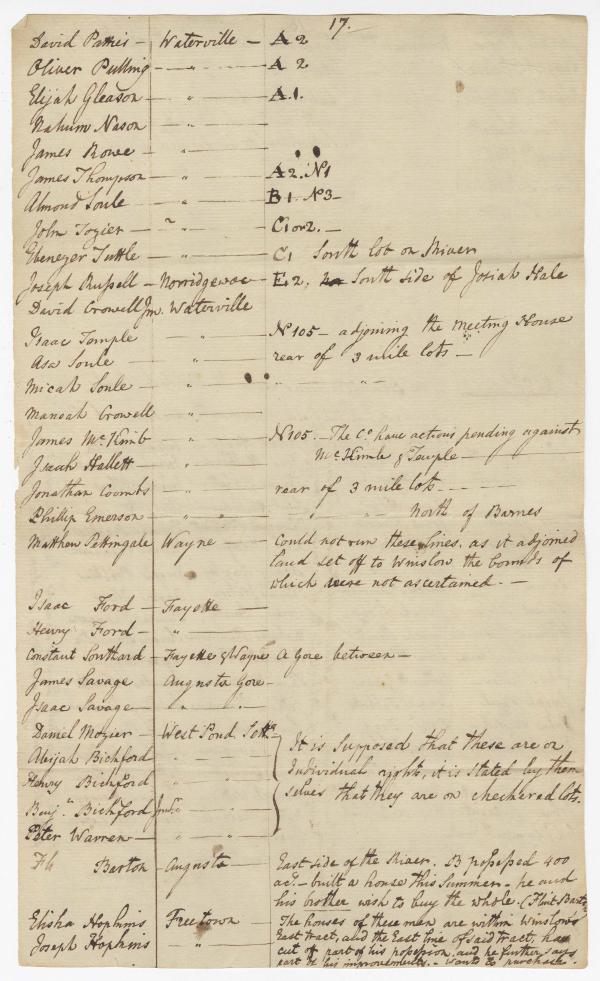 17.
David Patties - Waterville - A 2
Oliver Pulling - " - A 2
Elijah Gleason - " - A.1.
Nahum Nason - "
James Rowe - "
James Thompson - " - A 2. N1
Almond Soule - " - B 1. N3 -
John Tozier - " - C1 or 2. -
Ebenezer Tuttle - " - C1 South lot on River
Joseph Russell - Norridgewoc - E2, South side of Josiah Hale
David Crowell Jnr. Waterville
Isaac Temple - " - N 105 - adjoining the Meeting House
Asa Soule - " - rear of 3 mile lots -
Micah Soule - " - " - "
Manoah Crowell "
James McKimb - " - N 105. - The Co. have actions pending against
McKimb & Temple -
Isaah Hallett - "
Jonathan Coombs " - rear of 3 mile lots -
Phillip Emerson - " - " North of Barnes
Matthew Pettingale Wayne - Could not run these lines, as it adjoined
land set off to Winslow the bounds of
which were not ascertained. -
Isaac Ford - Fayette -
Henry Ford - " -
Constant Southard - Fayette & Wayne A Gore between -
James Savage Augusta Gore -
Isaac Savage - " "
Daniel Mozier - West Pond Settt.
Abijah Bichford - "
It is supposed that these are on
Henry Bichford " "
Individual rights, it is stated by them-
Benjn. Bichford Junr. "
selves that they are on checkered lots.
Peter Warren - " "
Barton - Augusta - East side of the River. B possessed 400
acs. - built a house this Summer - he and
his brother wish to buy the whole. (Flint Barton
Elisha Hopkins Freetown - The houses of these men are within Winslows
Joseph Hopkins " East tract, and the East line of said tract, has
cut off part of his possession, and he further says
part of his improvements. - wants to purchase.